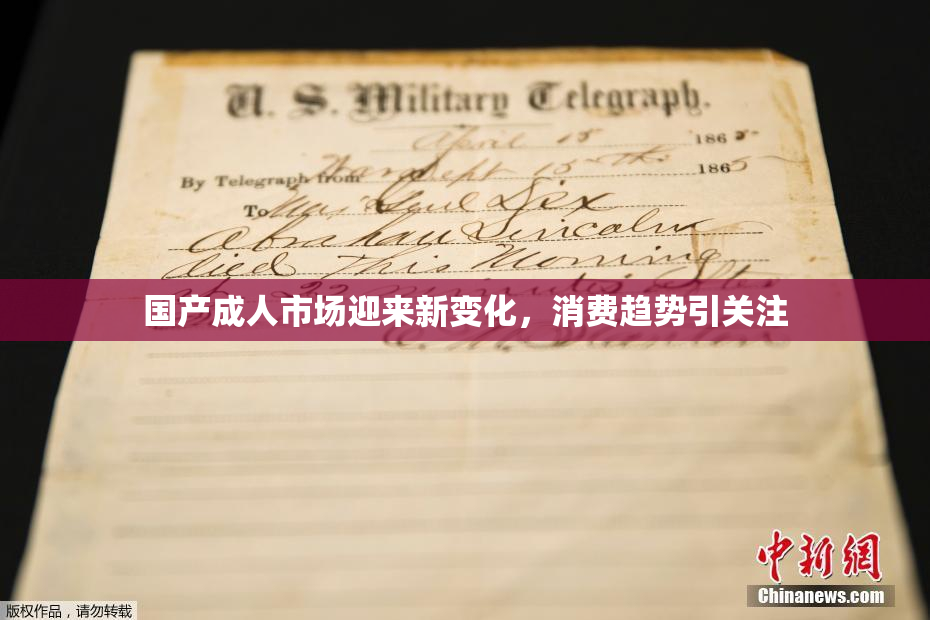 U. S. Military Telegraph.
April 15 1865
By Telegraph from War Dept 15th 1865
To Maj Genl Dix
Abraham Lincoln
died This Morning
at 22 minutes after
国产成人市场迎来新变化，消费趋势引关注
E. M. Stanton
中新网
Chinanews.com
版权作品，请勿转载